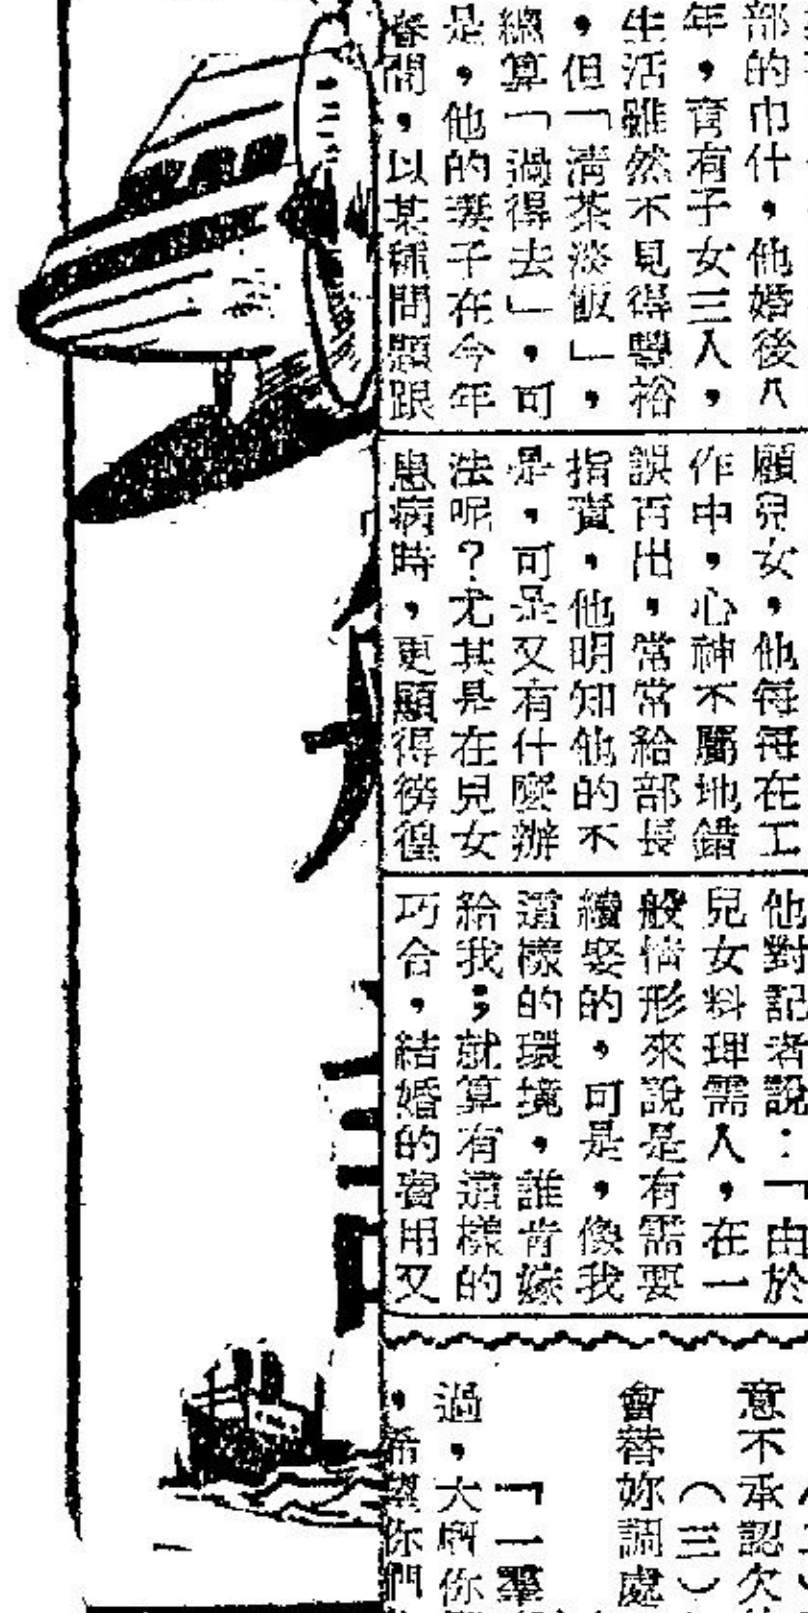 部的巾什，他婚後八
年，育有子女三人，
生活雖然不見得豐裕
，但「清茶淡飯」，
總算「過得去」，可
是，他的妻子在今年
春間，以某種問題跟
顧兒女，他每每在工
作中，心神不屬地錯
誤百出，常常給部長
指責，他明知他的不
是，可是又有什麼辦
法呢？尤其是在兒女
患病時，更顯得徬徨
他對記者說：「由於
兒女料理需人，在一
般情形來說是有需要
續娶的，可是，像我
這樣的環境，誰肯嫁
給我；就算有這樣的
巧合，結婚的費用又
意不承認欠
（三）
會替妳調處
「一羣
過，大
，希望你們